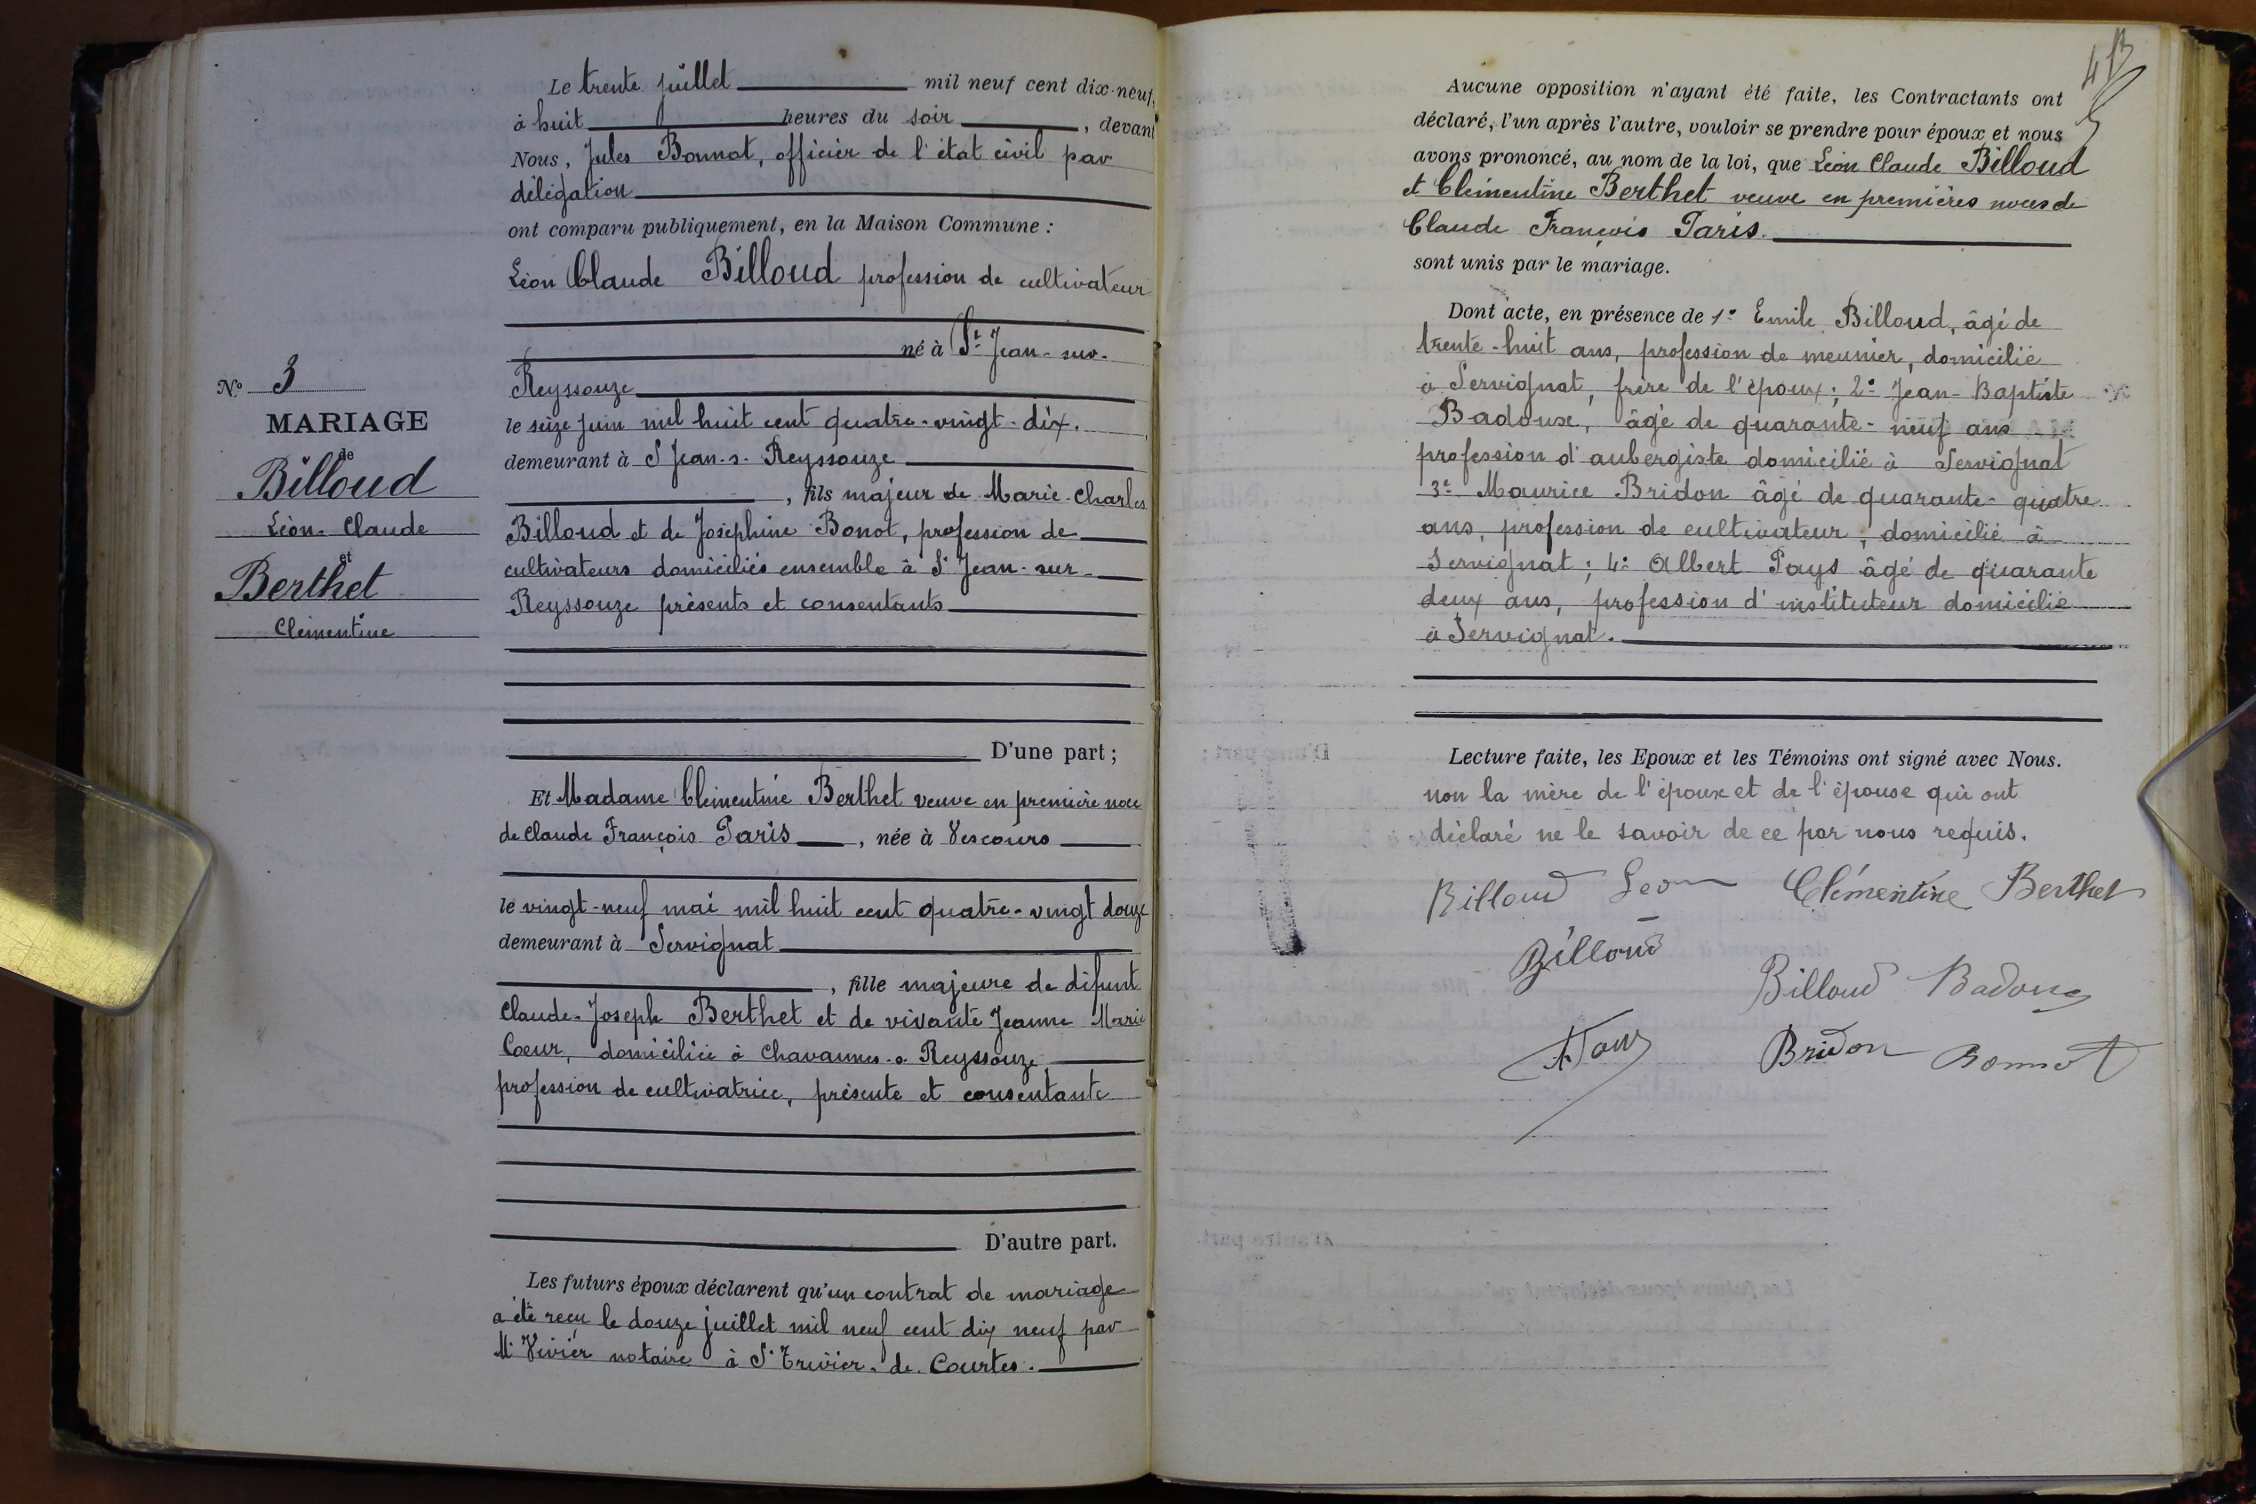 Le trente juillet mil neuf cent dix-neuf,
à huit heures du soir, devant
Nous, Jules Bonnot, officier de l'état civil par
délégation
ont comparu publiquement, en la Maison Commune :
Léon Claude Billoud profession de cultivateur
né à St Jean-sur-
Reyssouze
le seize Juin mil huit cent quatre-vingt-dix.
demeurant à S Jean-s-Reyssouze
, fils majeur de Marie-Charles
Billoud et de Joséphine Bonot, profession de
cultivateurs domiciliés ensemble à St Jean-sur-
Reyssouze présents et consentants
D'une part ;
Et Madame Clémentine Berthet veuve en première noce
de Claude François Paris, née à Vescours
le vingt-neuf mai mil huit cent quatre-vingt douze
demeurant à Servignat
, fille majeure de défunt
Claude-Joseph Berthet et de vivante Jeanne Marie
Coeur, domiciliée à Chavannes-s-Reyssouze
profession de cultivatrice, présente et consentante
D'autre part.
Les futurs époux déclarent qu'un contrat de mariage
a été reçu le douze juillet mil neuf cent dix neuf par
Me Vivier notaire à St Trivier-de-Courtes.
No 3
MARIAGE
de
Billoud
Léon-Claude
et
Berthet
Clémentine
Aucune opposition n'ayant été faite, les Contractants ont
déclaré, l'un après l'autre, vouloir se prendre pour époux et nous
avons prononcé, au nom de la loi, que Léon Claude Billoud
et Clémentine Berthet veuve en premières noces de
Claude François Paris.
sont unis par le mariage.
Dont acte, en présence de 1° Emile Billoud, âgé de
trente-huit ans, profession de meunier, domicilié
à Servignat, frère de l'époux ; 2° Jean-Baptiste
Badoux, âgé de quarante-neuf ans
profession d'aubergiste domicilié à Servignat
3° Maurice Bridon âgé de quarante-quatre
ans, profession de cultivateur, domicilié à
Servignat ; 4° Albert Pays âgé de quarante
deux ans, profession d'instituteur domicilié
à Servignat.
Lecture faite, les Epoux et les Témoins ont signé avec Nous.
non la mère de l'époux et de l'épouse qui ont
déclaré ne le savoir de ce par nous requis.
Billoud Leon Clémentine Berthet
Billoud
Billoud Badoux
Bridon Bonnot